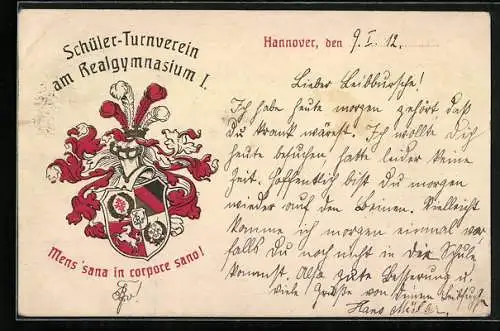 Schüler-Turnverein
am Realgymnasium I.
Mens sana in corpore sano!
Hannover, den 9. I. 12.
Lieber Leibbursche!
Ich habe heute morgen gehört, daß
Du krank wärest. Ich wollte Dich
heute besuchen, hatte leider keine
Zeit. Hoffentlich bist Du morgen
wieder auf den Beinen. Vielleicht
komme ich morgen einmal vor,
falls Du noch nicht in die Schule
kommst. Also gute Besserung u.
viele Grüße von Deinem Leibfuchs
Hans